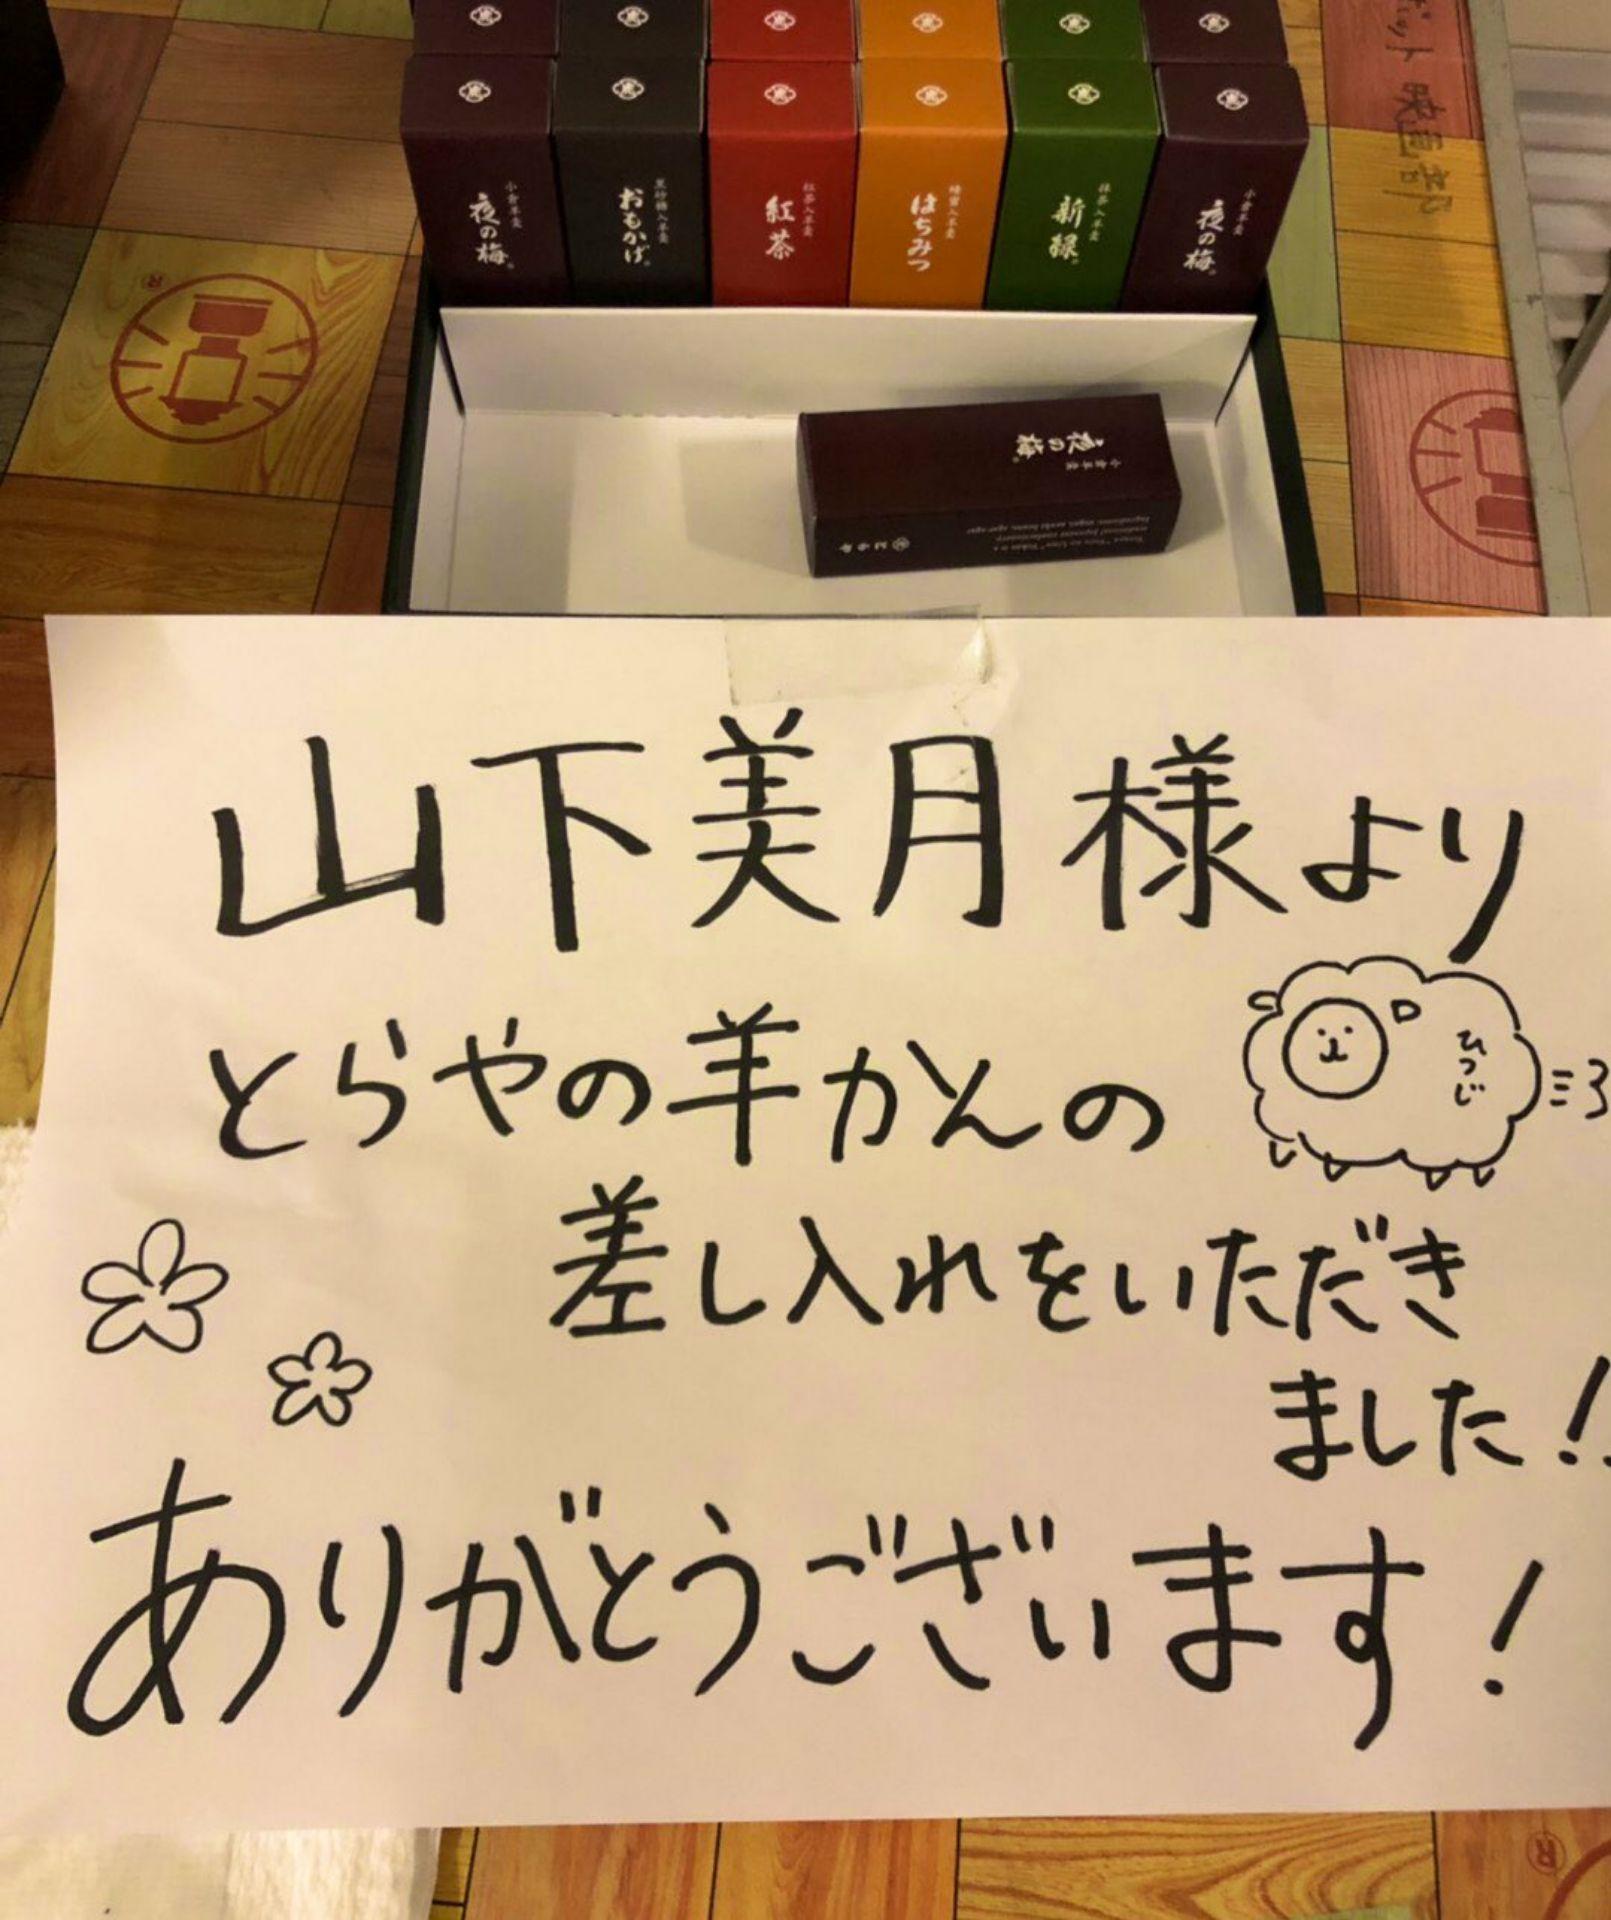 ボット 映画部
小倉羊羹
夜の梅。
黒砂糖入羊羹
おもかげ。
紅茶入羊羹
紅茶
蜂蜜入羊羹
はちみつ
抹茶入羊羹
新緑。
小倉羊羹
夜の梅。
夜の梅。
小倉羊羹
とらや
山下美月様より
とらやの羊かんの
ひつじ
差し入れをいただき
ました!!
ありがとうございます!